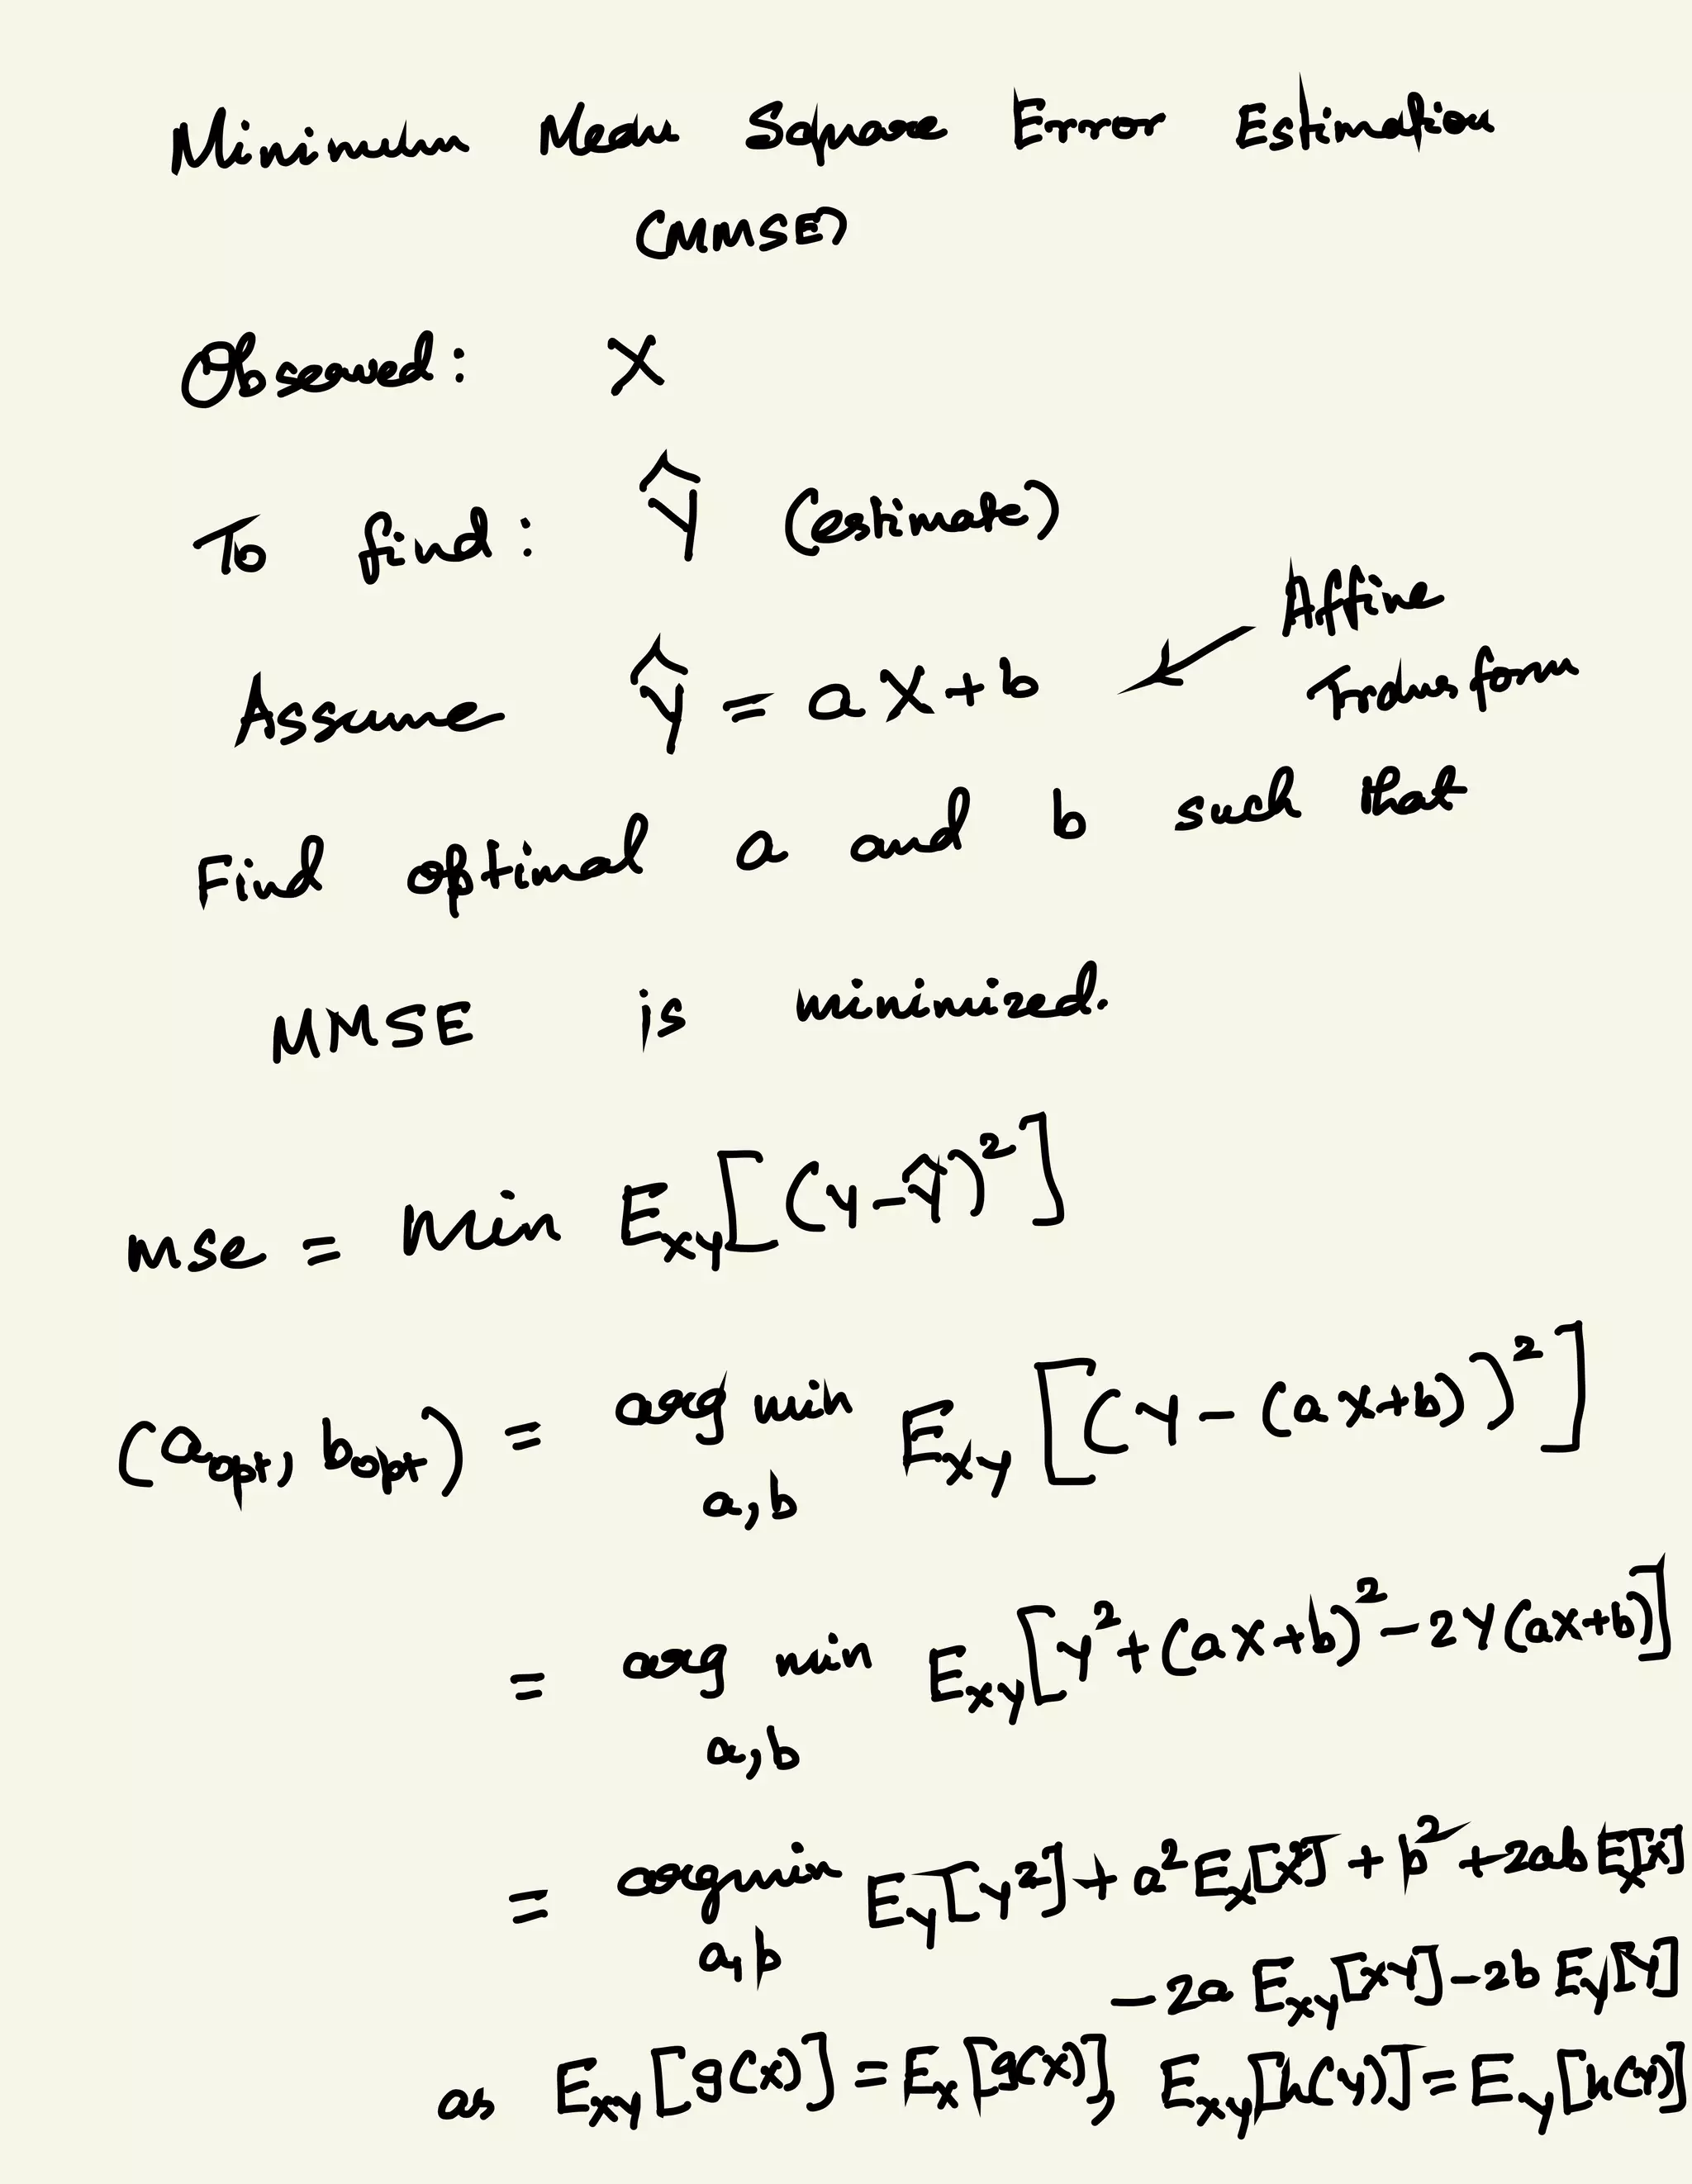 Minimum Mean Square Error Estimation
(MMSE)
Observed: X
To find: Ŷ (estimate)
Affine
Assume Ŷ = aX+b
Transform
Find optimal a and b such that
MMSE is minimized.
mse = Min E_XY[(Y-Ŷ)²]
(a_opt, b_opt) = arg min E_XY [(Y-(aX+b))²]
a,b
= arg min E_XY[Y²+(aX+b)²-2Y(aX+b)]
a,b
= argmin E_Y[Y²]+a²E_X[X²]+b²+2abE_X[X]
a,b
-2a E_XY[XY]-2b E_Y[Y]
as E_XY[g(X)]=E_X[g(X)], E_XY[h(Y)]=E_Y[h(Y)]